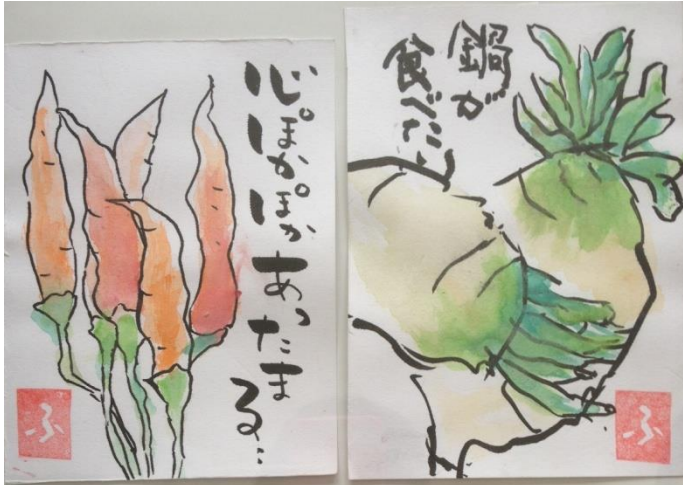 心ぽかぽか
あったま
る…
ふ
鍋が
食べたい
ふ